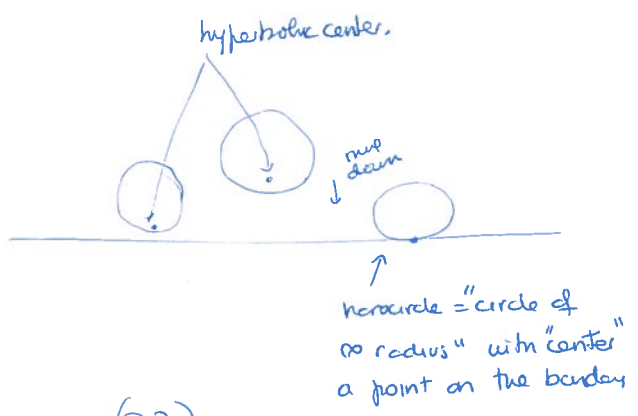 hyperbolic center.
move
down
horocircle = "circle of
∞ radius" with "center"
a point on the boundary